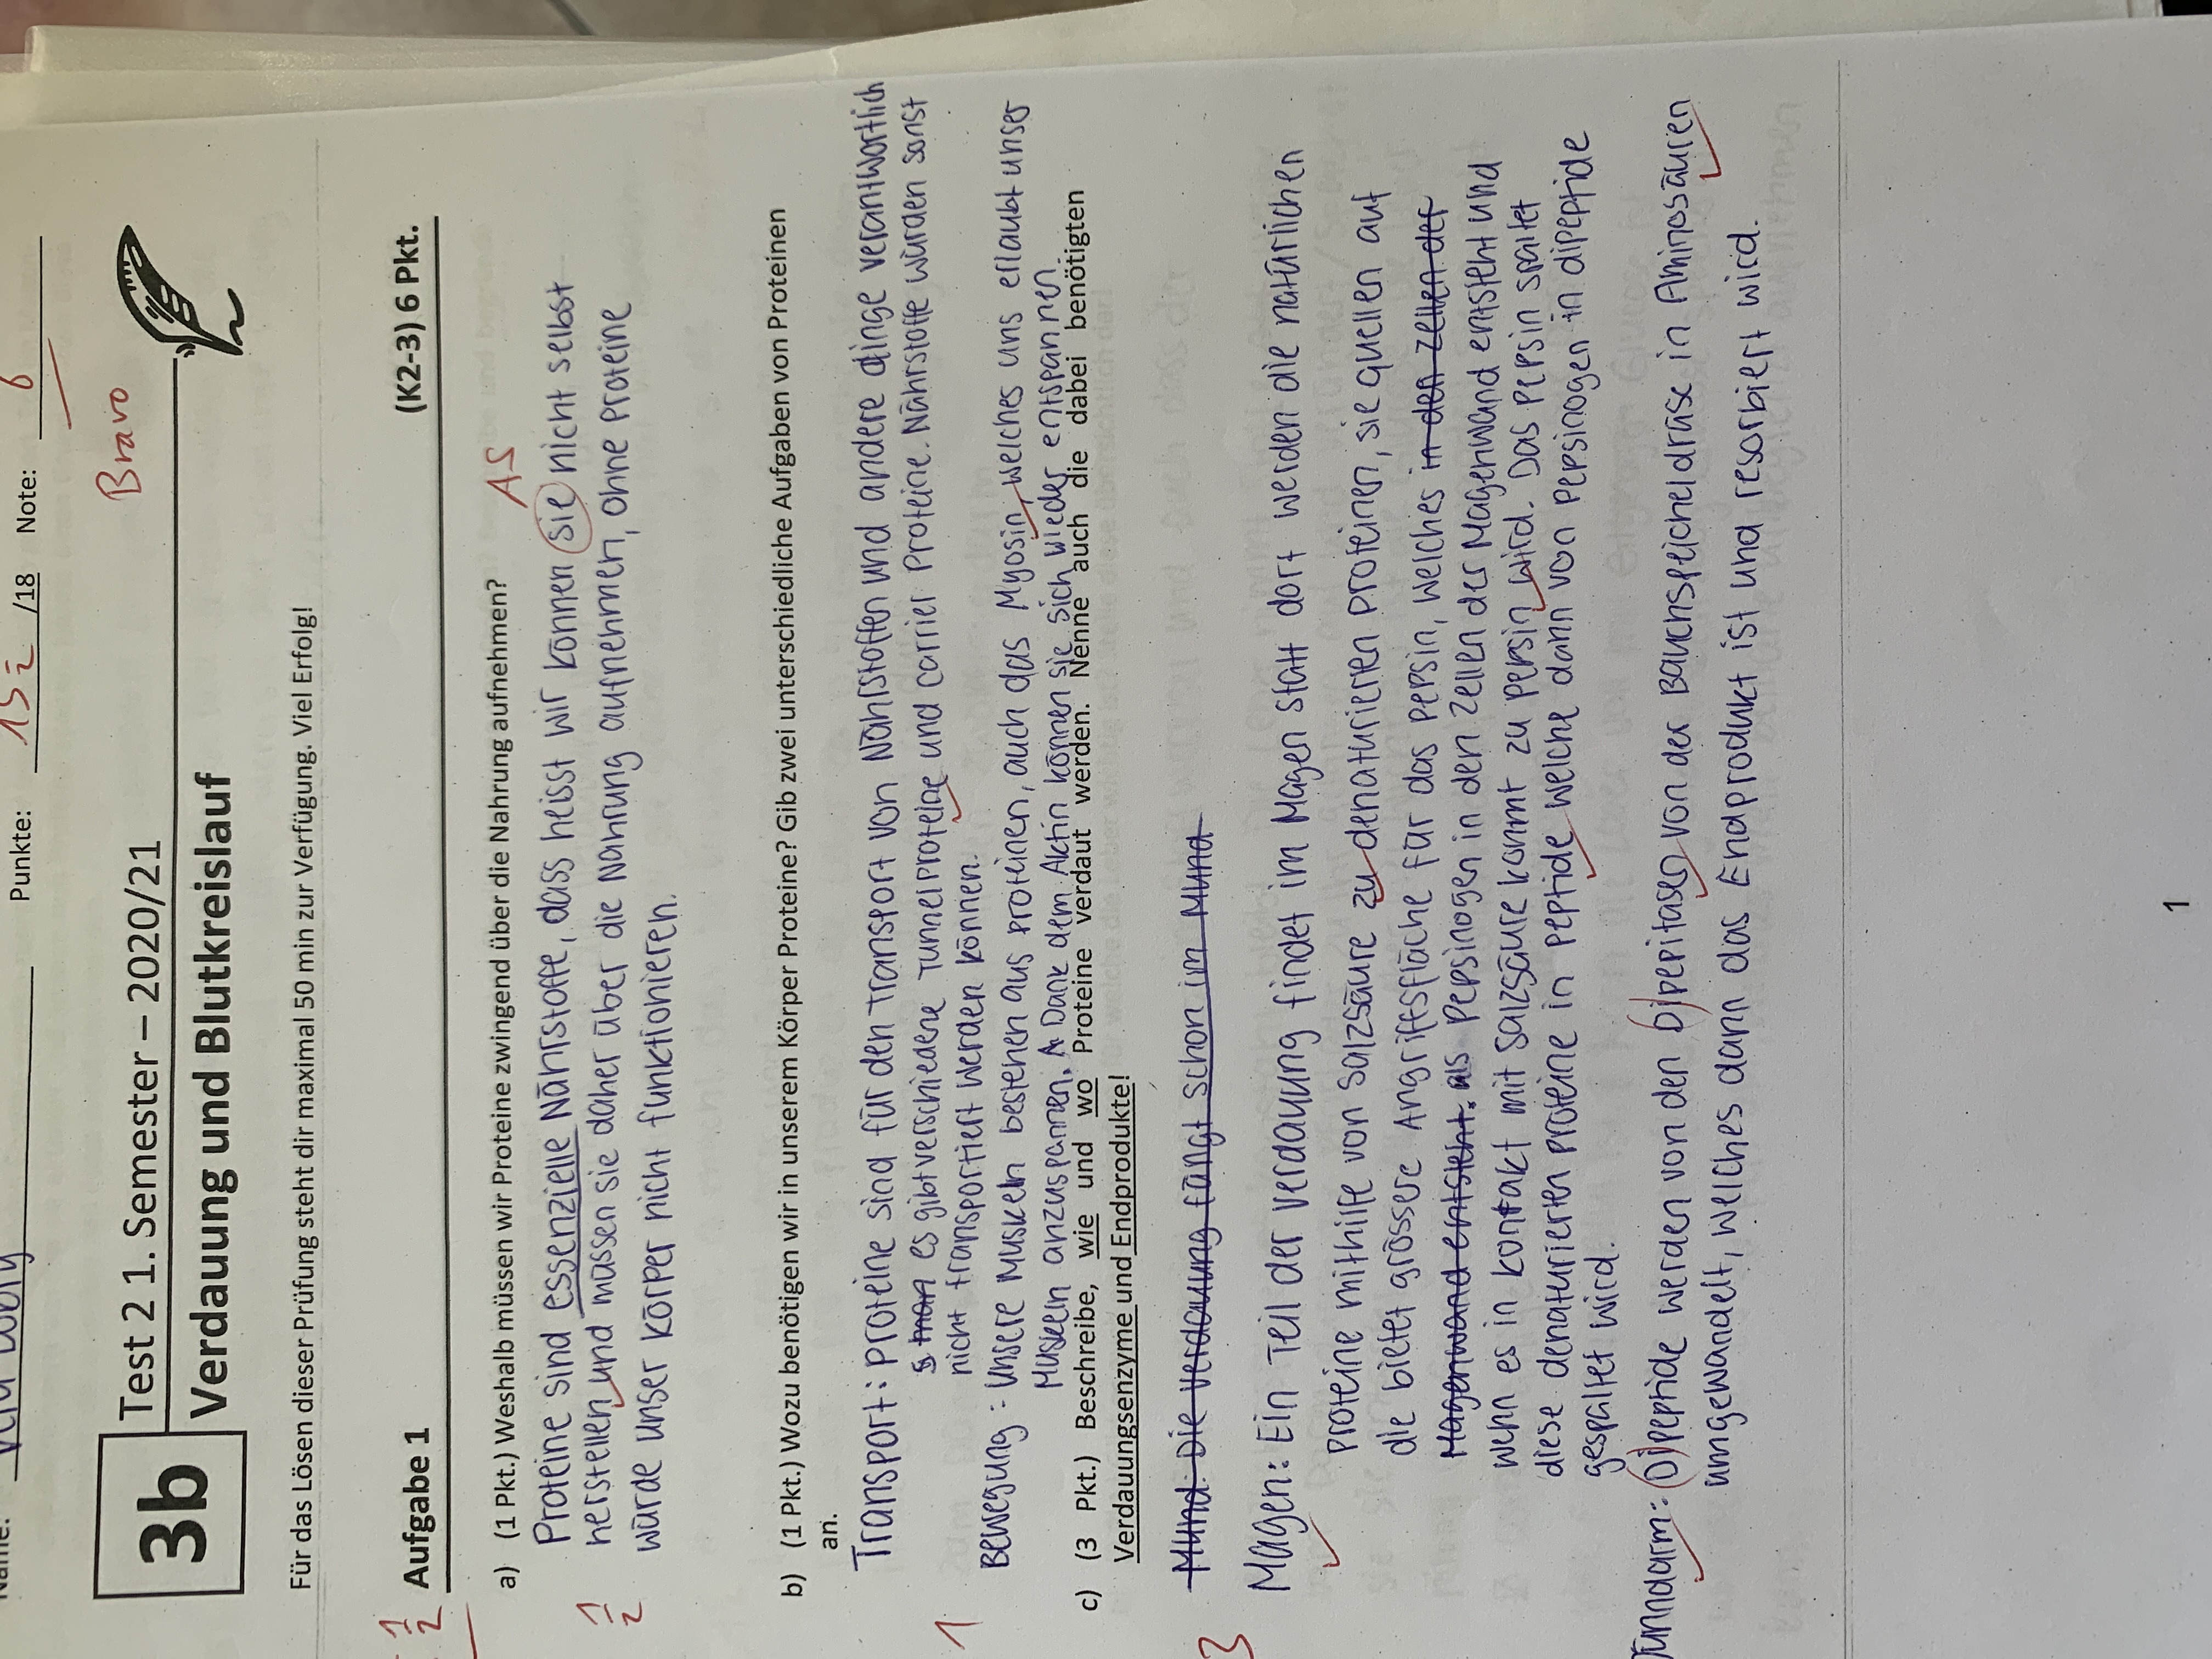 Name:
Punkte: 15 ½ /18 Note: 6
Bravo
3b
Test 2 1. Semester – 2020/21
Verdauung und Blutkreislauf
Für das Lösen dieser Prüfung steht dir maximal 50 min zur Verfügung. Viel Erfolg!
½ Aufgabe 1 (K2-3) 6 Pkt.
a) (1 Pkt.) Weshalb müssen wir Proteine zwingend über die Nahrung aufnehmen?
AS
Proteine sind essenzielle Nährstoffe, dass heisst wir können sie nicht selbst
½ herstellen und müssen sie daher über die Nahrung aufnehmen, ohne Proteine
würde unser Körper nicht funktionieren.
b) (1 Pkt.) Wozu benötigen wir in unserem Körper Proteine? Gib zwei unterschiedliche Aufgaben von Proteinen
an.
Transport: Proteine sind für den Transport von Nährstoffen und andere dinge verantwortlich
man es gibt verschiedene Tunnelproteine und carrier Proteine. Nährstoffe würden sonst
1 nicht transportiert werden können.
Bewegung: unsere Muskeln bestehen aus Proteinen, auch das Myosin, welches uns erlaubt unser
Muskeln anzuspannen. A Dank dem Aktin können sie sich wieder entspannen.
c) (3 Pkt.) Beschreibe, wie und wo Proteine verdaut werden. Nenne auch die dabei benötigten
Verdauungsenzyme und Endprodukte!
Mund: Die Verdauung fängt schon im Mund
3
Magen: Ein Teil der Verdauung findet im Magen statt dort werden die natürlichen
Proteine mithilfe von Salzsäure zu denaturierten Proteinen, sie quellen auf
die bietet grössere Angriffsfläche für das Pepsin, welches in den Zellen der
Magenwand entsteht. als Pepsinogen in den Zellen der Magenwand entsteht und
wenn es in kontakt mit Salzsäure kommt zu Pepsin wird. Das Pepsin spaltet
diese denaturierten Proteine in Peptide welche dann von Pepsinogen in dipeptide
gespaltet wird.
Dünndarm: (Di)peptide werden von den Di)pepitasen von der Bauchspeicheldrüse in Aminosäuren
umgewandelt, welches dann das Endprodukt ist und resorbiert wird.
1